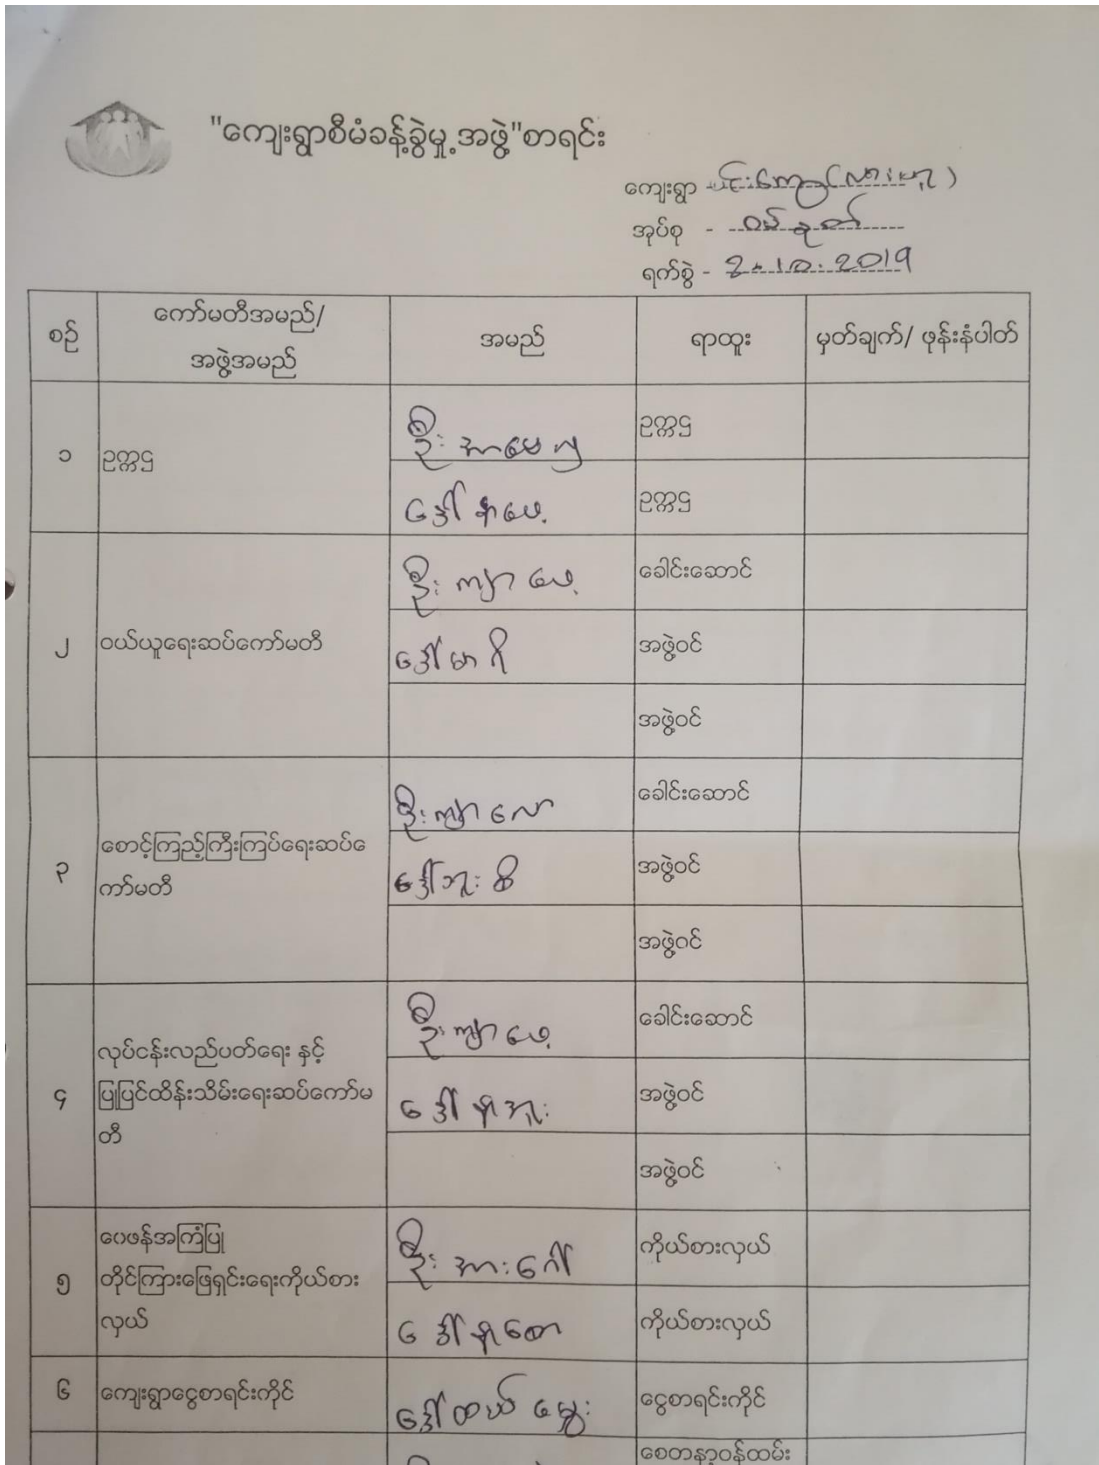 "ကျေးရွာစီမံခန့်ခွဲမှု့အဖွဲ့"စာရင်း
ကျေးရွာ
အုပ်စု - ဝမ်နုတ်
ရက်စွဲ - 2.10.2019
စဉ် ကော်မတီအမည်/ အဖွဲ့အမည် အမည် ရာထူး မှတ်ချက်/ ဖုန်းနံပါတ်
၁ ဥက္ကဌ ဦး ဥက္ကဌ
ဒေါ်နာဖေ့ ဥက္ကဌ
၂ ဝယ်ယူရေးဆပ်ကော်မတီ ဦးကျာဖေ့ ခေါင်းဆောင်
ဒေါ်မာရိ အဖွဲ့ဝင်
အဖွဲ့ဝင်
၃ စောင့်ကြည့်ကြီးကြပ်ရေးဆပ်ကော်မတီ ဦးကျာလော ခေါင်းဆောင်
ဒေါ်ဘူးဆိ အဖွဲ့ဝင်
အဖွဲ့ဝင်
၄ လုပ်ငန်းလည်ပတ်ရေး နှင့် ပြုပြင်ထိန်းသိမ်းရေးဆပ်ကော်မတီ ဦးကျာဖေ့ ခေါင်းဆောင်
ဒေါ်နာအူး အဖွဲ့ဝင်
အဖွဲ့ဝင်
၅ ဝေဖန်အကြံပြု တိုင်ကြားဖြေရှင်းရေးကိုယ်စားလှယ် ဦးအားဂေါ် ကိုယ်စားလှယ်
ဒေါ်နာစော ကိုယ်စားလှယ်
၆ ကျေးရွာငွေစာရင်းကိုင် ဒေါ်ထယ်မွှေး ငွေစာရင်းကိုင်
စေတနာ့ဝန်ထမ်း